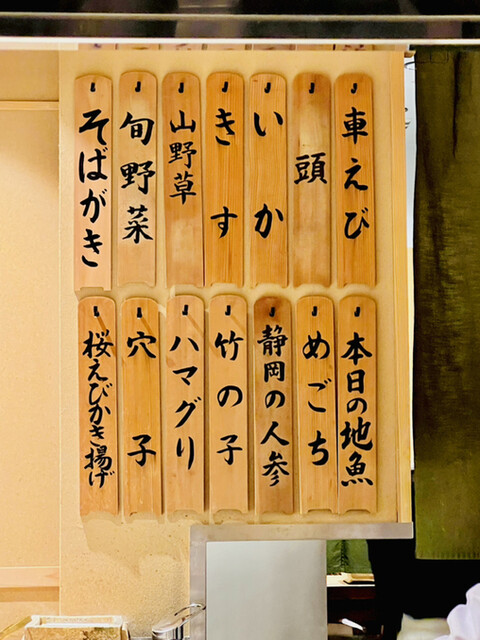 車えび
頭
いか
きす
山野草
旬野菜
そばがき
本日の地魚
めごち
静岡の人参
竹の子
ハマグリ
穴子
桜えびかき揚げ